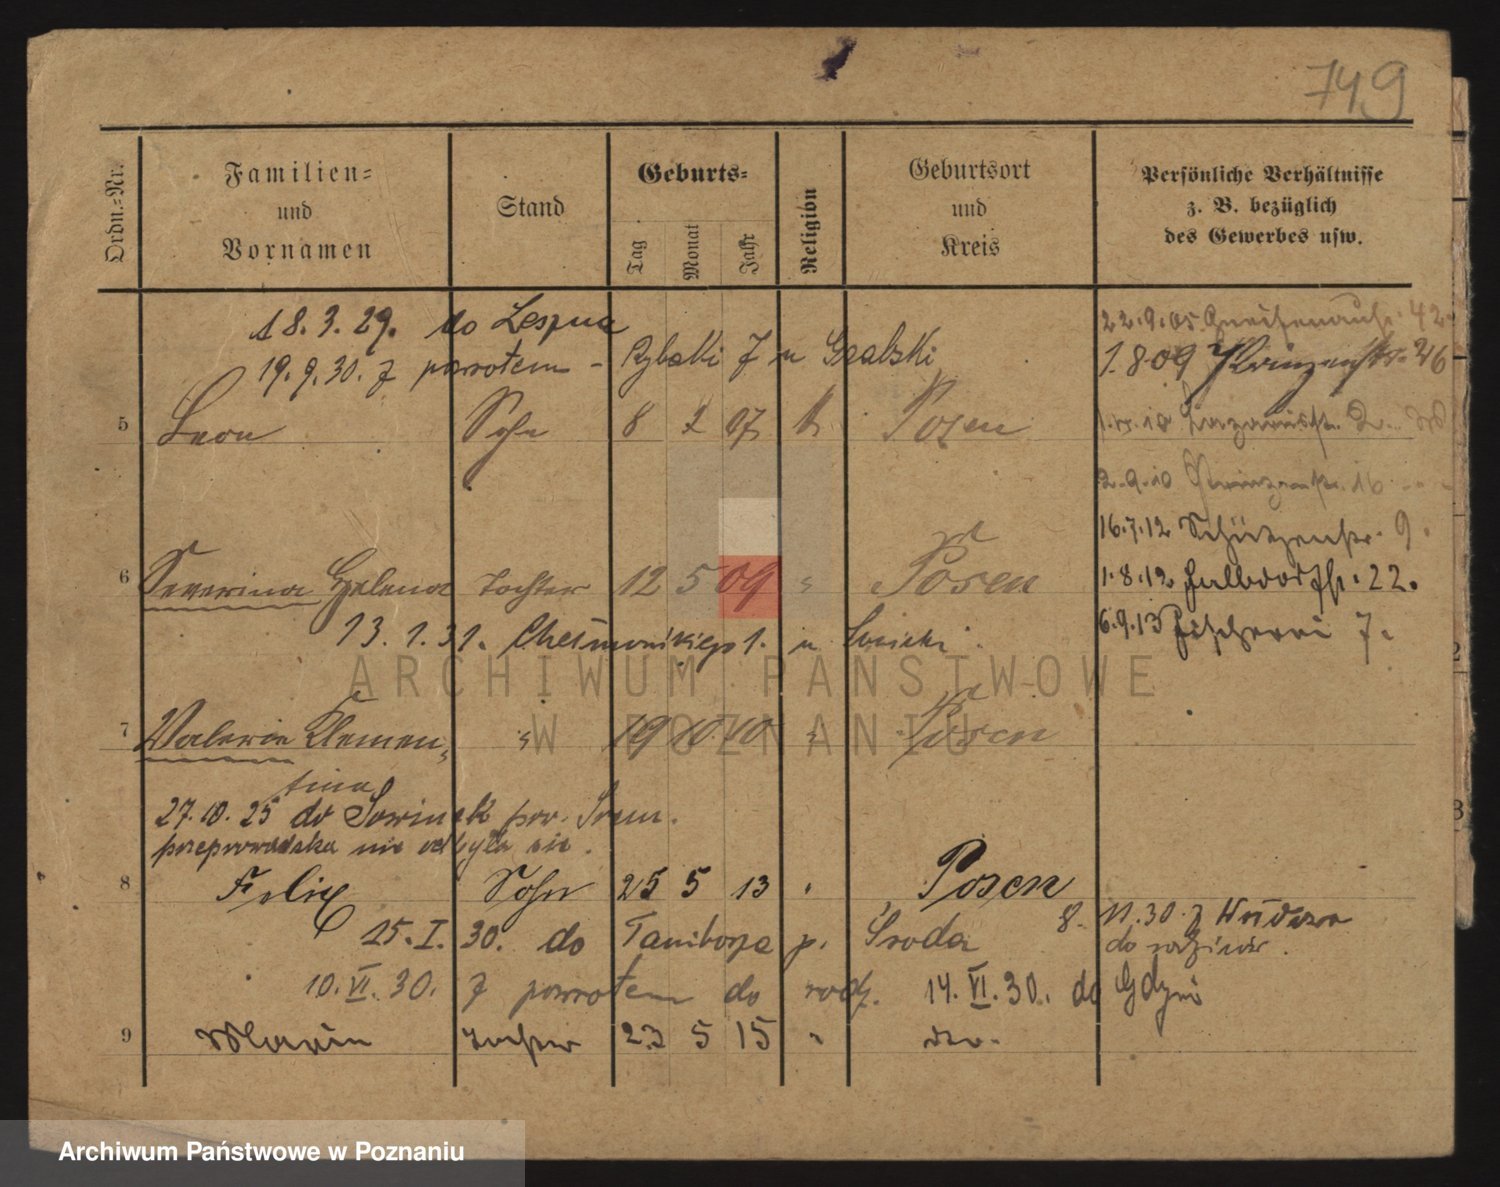 749
Ordn.-Nr.
Familien-
und
Vornamen
Stand
Geburts-
Tag
Monat
Jahr
Religion
Geburtsort
und
Kreis
Persönliche Verhältnisse
z. B. bezüglich
des Gewerbes usw.
18. 3. 29. do Leszna
19. 9. 30. z powrotem - Rybaki 7 u
22.9.05. Gneisenaustr. 42
1.8.09 Prinzenstr. 46
5 Leon Sohn 8 2 07 k Posen
2.9.10 Prinzenstr. 16
16.7.12 Schützenstr. 9.
6 Severina Helena Tochter 12 5 09 " Posen
1.8.12 Halbdorfstr. 22.
13. 1. 31. u
6.9.13 Fischerei 7.
ARCHIWUM PAŃSTWOWE
W POZNANIU
7 Valerie Klemen- " 19 10 10 " Posen
tina
27. 10. 25 do Sowinek pow. Śrem.
przeprowadzka nie odbyła się.
8 Felix Sohn 25 5 13 " Posen
15. I. 30. do Taniborza p. Środa
8. 11. 30. z
do rodziców.
10. VI. 30. z powrotem do rodz. 14. VI. 30. do Gdyni
9 Maria Tochter 23 5 15 " do.
Archiwum Państwowe w Poznaniu